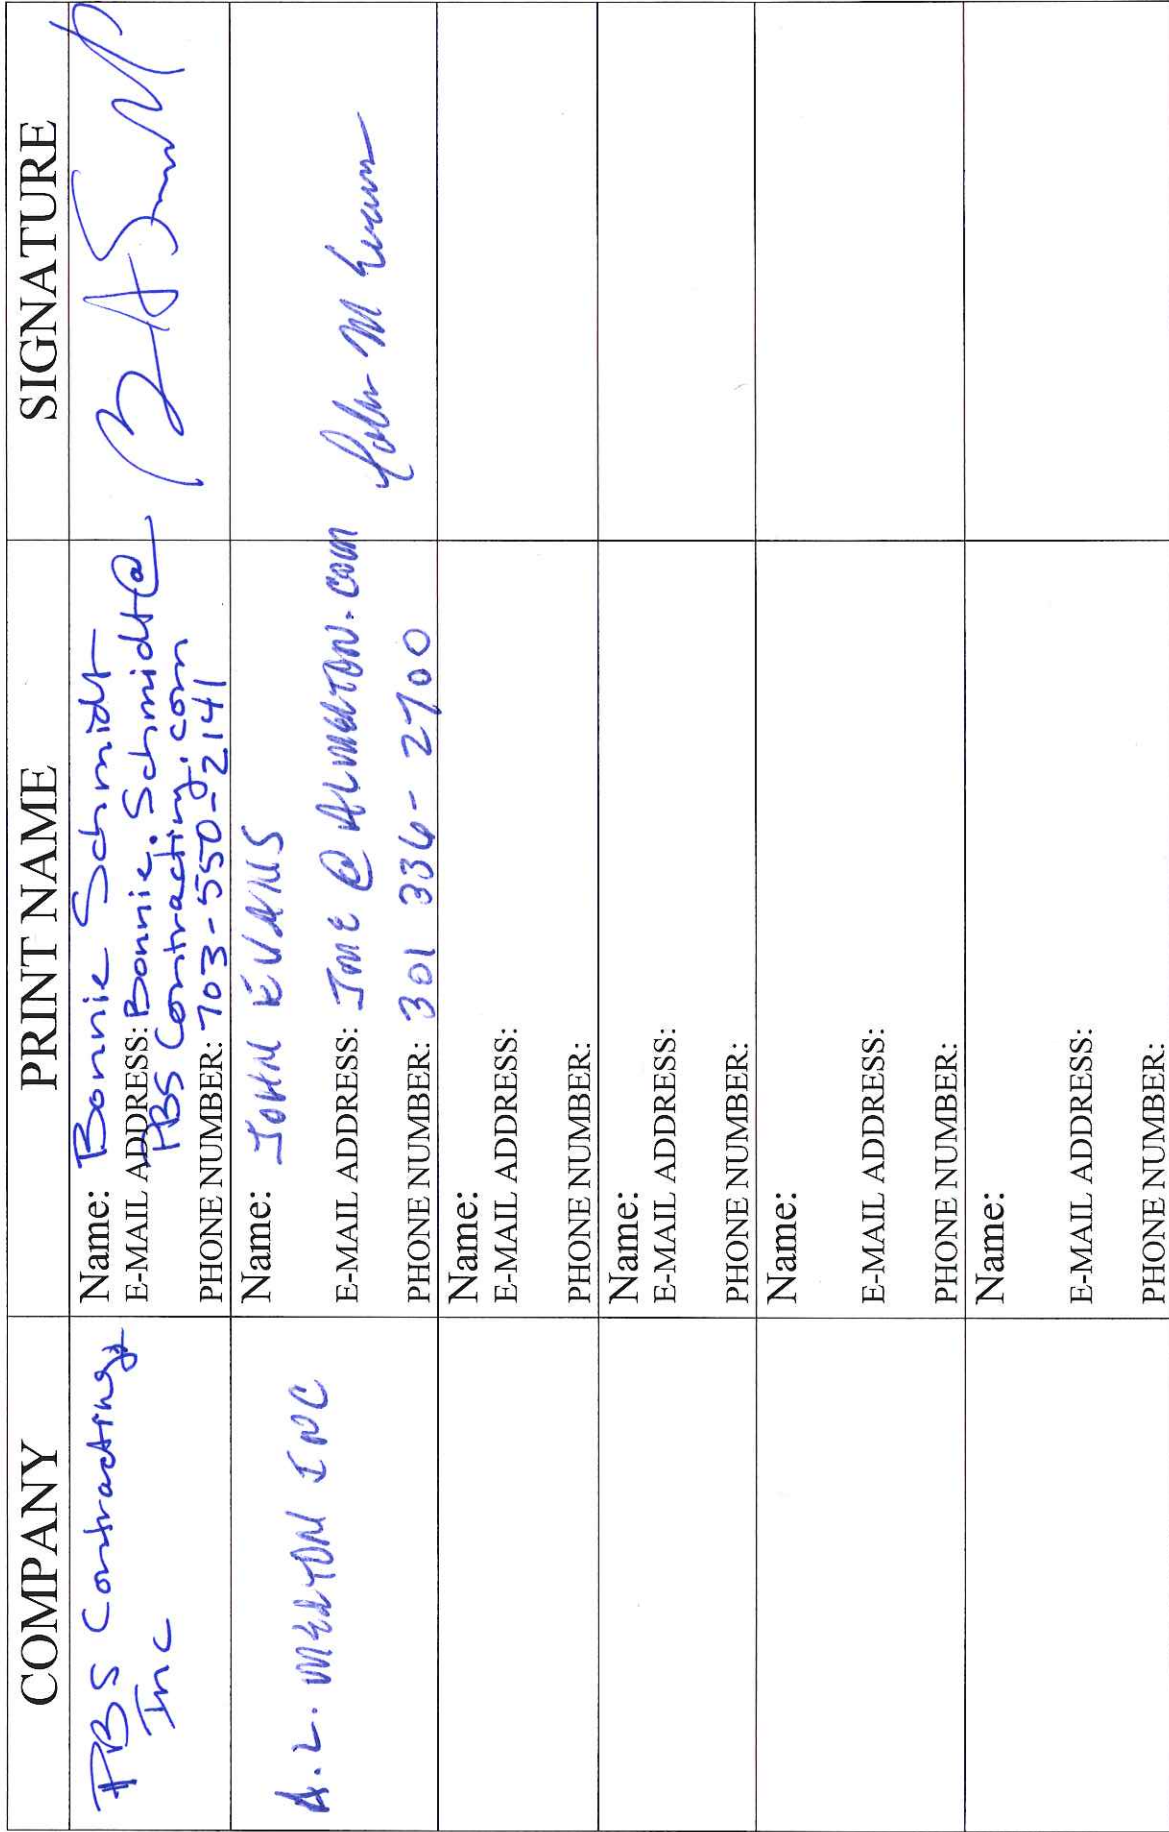 COMPANY PRINT NAME SIGNATURE
HBS Contracting, Inc
Name: Bonnie Schmidt
E-MAIL ADDRESS: Bonnie.Schmidt@
HBS Contracting.com
PHONE NUMBER: 703-550-2141
A.L. MELTON INC
Name: JOHN EVANS
E-MAIL ADDRESS: JME @ ALMELTON.COM
PHONE NUMBER: 301 336-2700
John M Evans
Name:
E-MAIL ADDRESS:
PHONE NUMBER:
Name:
E-MAIL ADDRESS:
PHONE NUMBER:
Name:
E-MAIL ADDRESS:
PHONE NUMBER:
Name:
E-MAIL ADDRESS:
PHONE NUMBER: